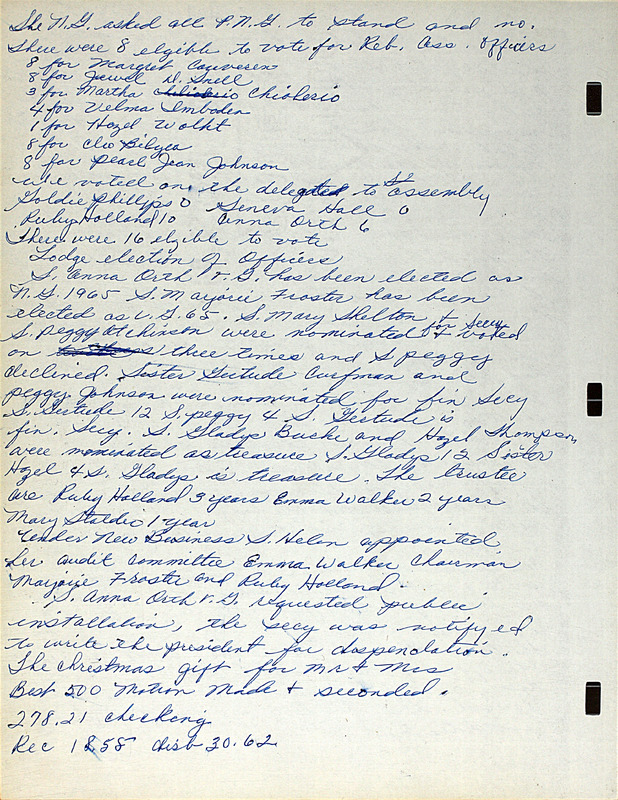 The N.G. asked all P.N.G. to stand and no.
There were 8 eligible to vote for Reb. Ass. Officers
8 for Margret Couveren
8 for Jewel D. Snell
3 for Martha Chiolerio
4 for Velma Imboden
1 for Hazel Wolht
8 for Cleo Bilyea
8 for Pearl Jean Johnson
we voted on the delegated to assembly
Goldie Phillips 0 Geneva Hall 0
Ruby Holland 10 Anna Orth 6
There were 16 elgible to vote
Lodge election of Officers
S. Anna Orth V.G. has been elected as
N.G. 1965 S. Marjorie Froster has been
elected as V.G. 65. S. Mary Skelton +
S. Peggy Atchinson were nominated for Secy + voted
on three times and S peggy
declined. Sister Gertude Curfman and
peggy Johnson were nominated for fin Secy
S. Gertude 12 S. peggy 4 S. Gertude is
fin. Secy. S. Gladys Bucke and Hazel Thompson
were nominated as treasure S. Gladys 12 Sister
Hazel 4 S. Gladys is treasure. The trustee
are Ruby Holland 3 years Emma Walker 2 years
Mary Staldio 1 year
Under New Business S. Helen appointed
her audit committee Emma Walker Chairman
Marjorie Froster and Ruby Holland.
S. Anna Orth V.G. requested public
installation, the secy was notifyed
to write the president for despendation.
The Christmas gift for Mr + Mrs
Best 500 Motion Made + seconded.
278.21 checking
Rec 18.58 disb 30.62